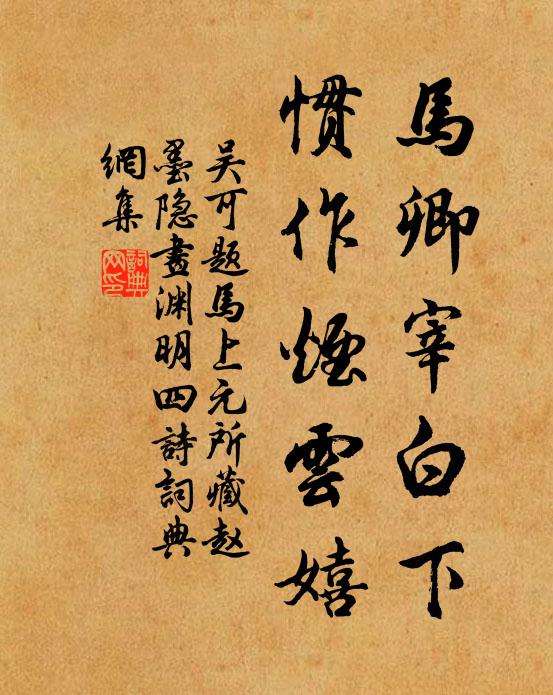 馬卿宰白下
慣作煙雲嬉
吴可题馬上元所藏赵
墨隐畫渊明四詩詞典
網集
詞典
网印